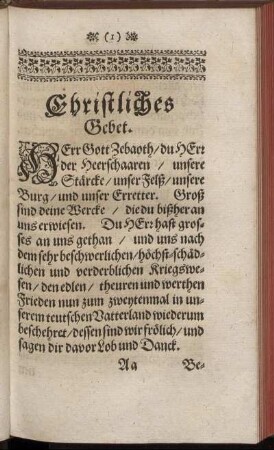 (1)
Christliches
Gebet.
HErr Gott Zebaoth/du HErr
der Heerschaaren / unsere
Stärcke/unser Felß/unsere
Burg/und unser Erretter. Groß
sind deine Wercke / die du bißher an
uns erwiesen. Du HErr hast gros-
ses an uns gethan / und uns nach
dem sehr beschwerlichen/höchst-schäd-
lichen und verderblichen Kriegswe-
sen/den edlen / theuren und werthen
Frieden nun zum zweytenmal in un-
serem teutschen Vatterland wiederum
beschehret/dessen sind wir frölich/und
sagen dir davor Lob und Danck.
Aa Be-